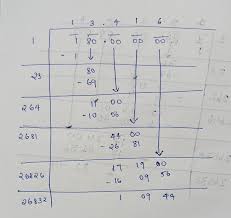 1 3 . 4 1 6
1 1 80 . 00 00 00
- 1
23 80
- 69
264 11 00
- 10 56
2681 44 00
- 26 81
26826 17 19 00
- 16 09 56
26832 1 09 44